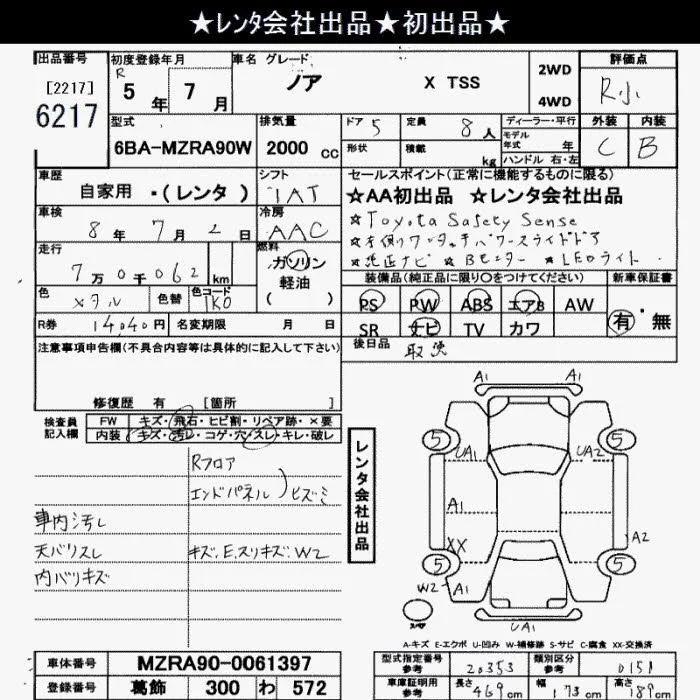 ★レンタ会社出品★初出品★
出品番号 初度登録年月 車名 グレード 評価点
[2217] 6217
R 5年 7月 ノア X TSS 2WD 4WD R小
型式 排気量 ドア 5 定員 8人 ディーラー・平行 外装 内装
6BA-MZRA90W 2000cc 形状 積載 kg モデル年式 年 ハンドル 右・左 C B
車歴 シフト セールスポイント(正常に機能するものに限る)
自家用 ・(レンタ) IAT ☆AA初出品 ☆レンタ会社出品
車検 冷房 ☆Toyota Safety Sense
8年 7月 2日 AAC ☆左側ワンタッチパワースライドドア
走行 燃料 ☆純正ナビ ☆Bモニター ☆LEDライト
7万0千062km ガソリン 軽油 ( )
装備品(純正品に限り○をつけてください) 新車保証書
色 メタル 色替 色コード 1K0
PS PW ABS エアB AW 有・無
R券 14040円 名変期限 月 日 SR ナビ TV カワ
注意事項申告欄(不具合内容等は具体的に記入して下さい) 後日品 取説
修復歴 有 [箇所 ]
検査員記入欄 FW キズ・飛石・ヒビ割・リペア跡・×要
内装 キズ・汚レ・コゲ・穴・スレ・キレ・破レ
Rフロア
エンドパネル )ヒズミ
車内汚レ
天バリスレ キズ、E、スリキズ、W2
内バリキズ
レンタ会社出品
A1 A1
5 UA1 UA2 5
A1
XX A2
5 5
W2 A1 A1
スペア UA1
A-キズ E-エクボ U-凹み W-補修跡 S-サビ C-腐食 XX-交換済
車体番号 MZRA90-0061397 型式指定番号 参考 20353 類別区分 参考 0151
登録番号 葛飾 300 わ 572 車庫証明用 参考 長さ 469cm 幅 173cm 高さ 189cm